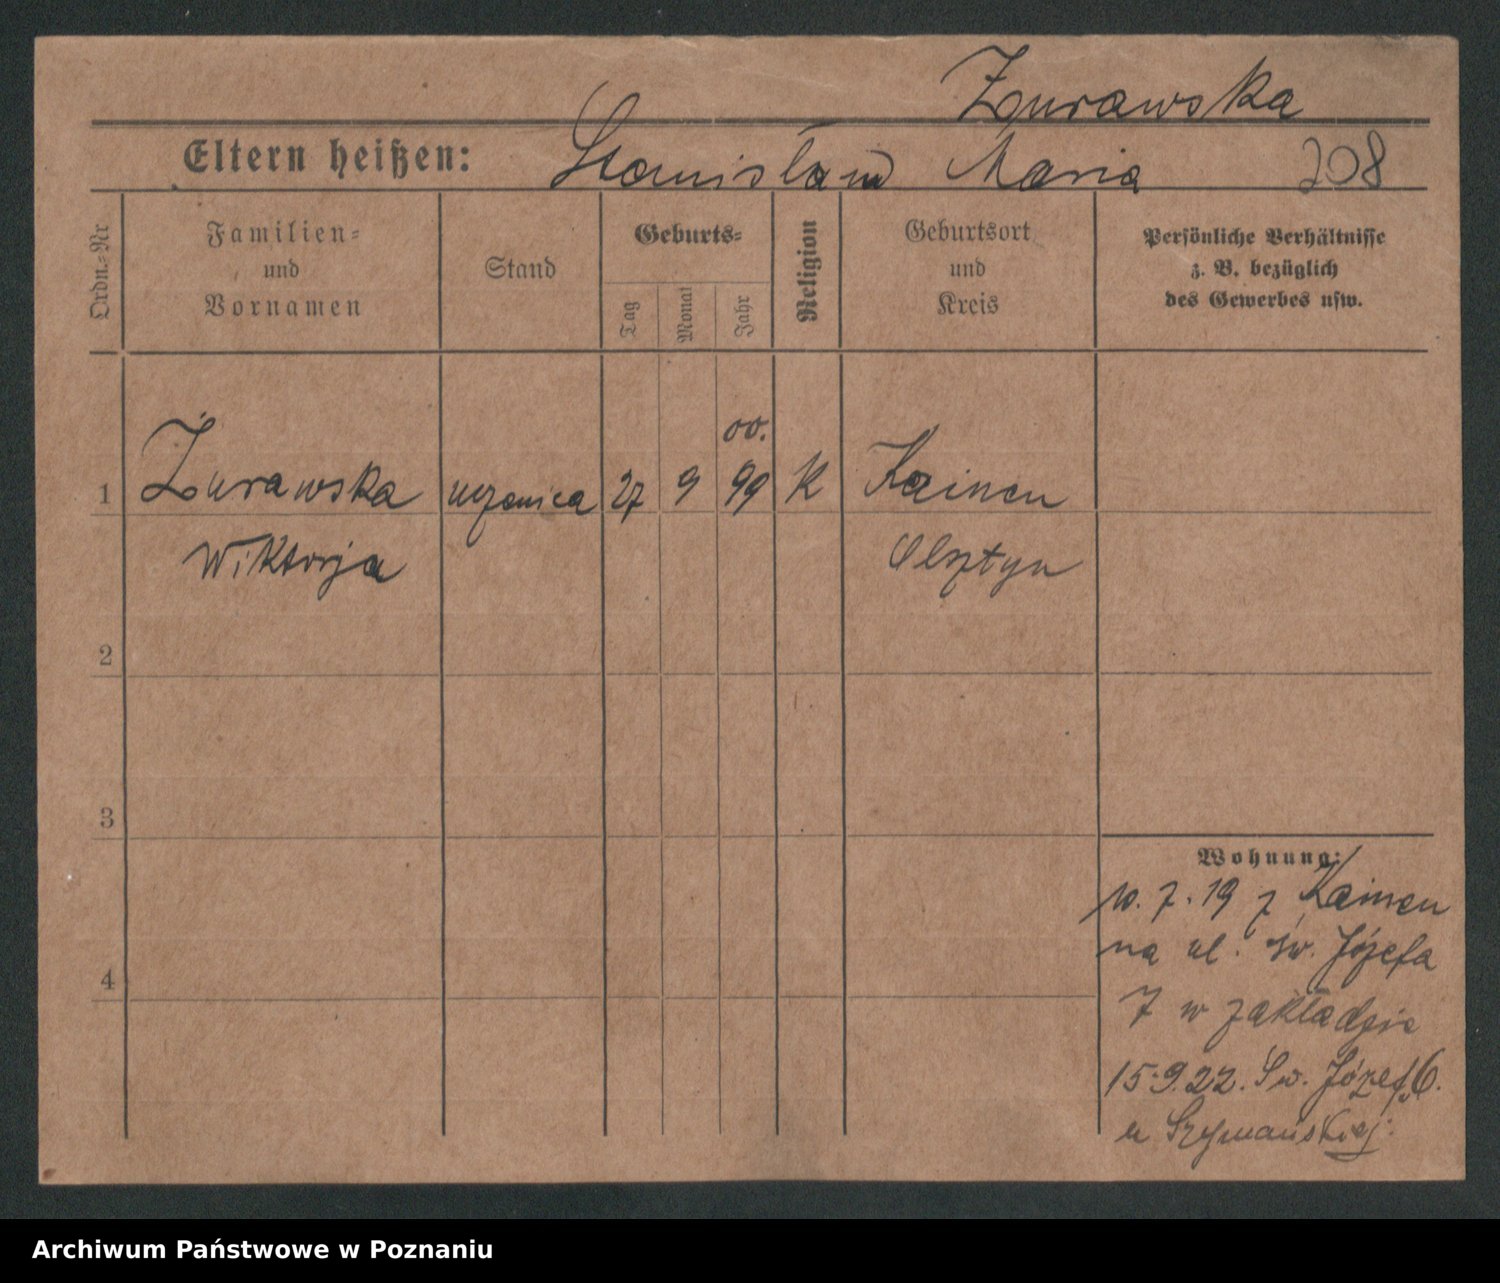 Żurawska
Eltern heißen: Stanisław Maria 208
Ordn.=Nr
Familien=
und
Vornamen
Stand
Geburts=
Tag
Monat
Jahr
Religion
Geburtsort
und
Kreis
Persönliche Verhältnisse
z. B. bezüglich
des Gewerbes usw.
00.
1 Żurawska uczenica 27 9 99 K Kainen
Wiktorja Olsztyn
2
3
4
Wohnung:
10. 7. 19 z Kainen
na ul. św. Józefa
7 w zakładzie
15.9.22. Św. Józef. 6.
u Szymańskiej.
Archiwum Państwowe w Poznaniu